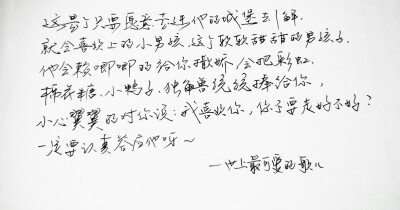 这是个只要愿意走进他的城堡去了解,
就会喜欢上的小男孩,这个软软甜甜的男孩子,
他会赖唧唧的给你撒娇,会把彩虹、
棉花糖、小鸭子、独角兽统统捧给你,
小心翼翼的对你说:我喜欢你,你不要走好不好?
一定要认真答应他呀~
—世上最可爱的